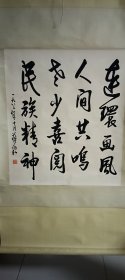 连环画风
人间共鸣
老少喜阅
民族精神